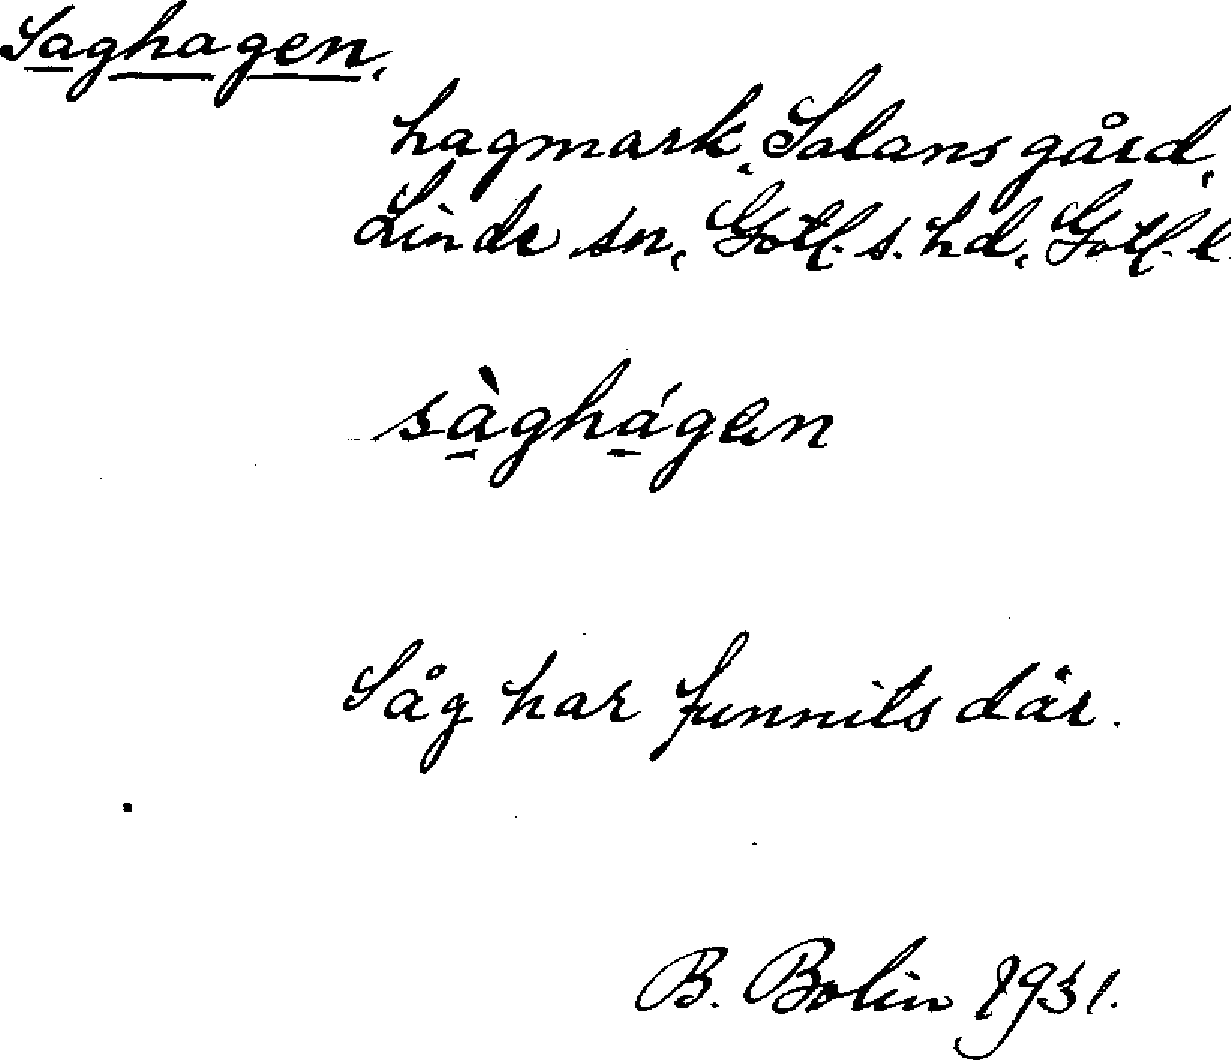 Saghagen,
hagmark, Salans gård,
Linde sn, Gotl. s. hd, Gotl. l.
sàghágen
Såg har funnits där.
B. Bolin 1931.